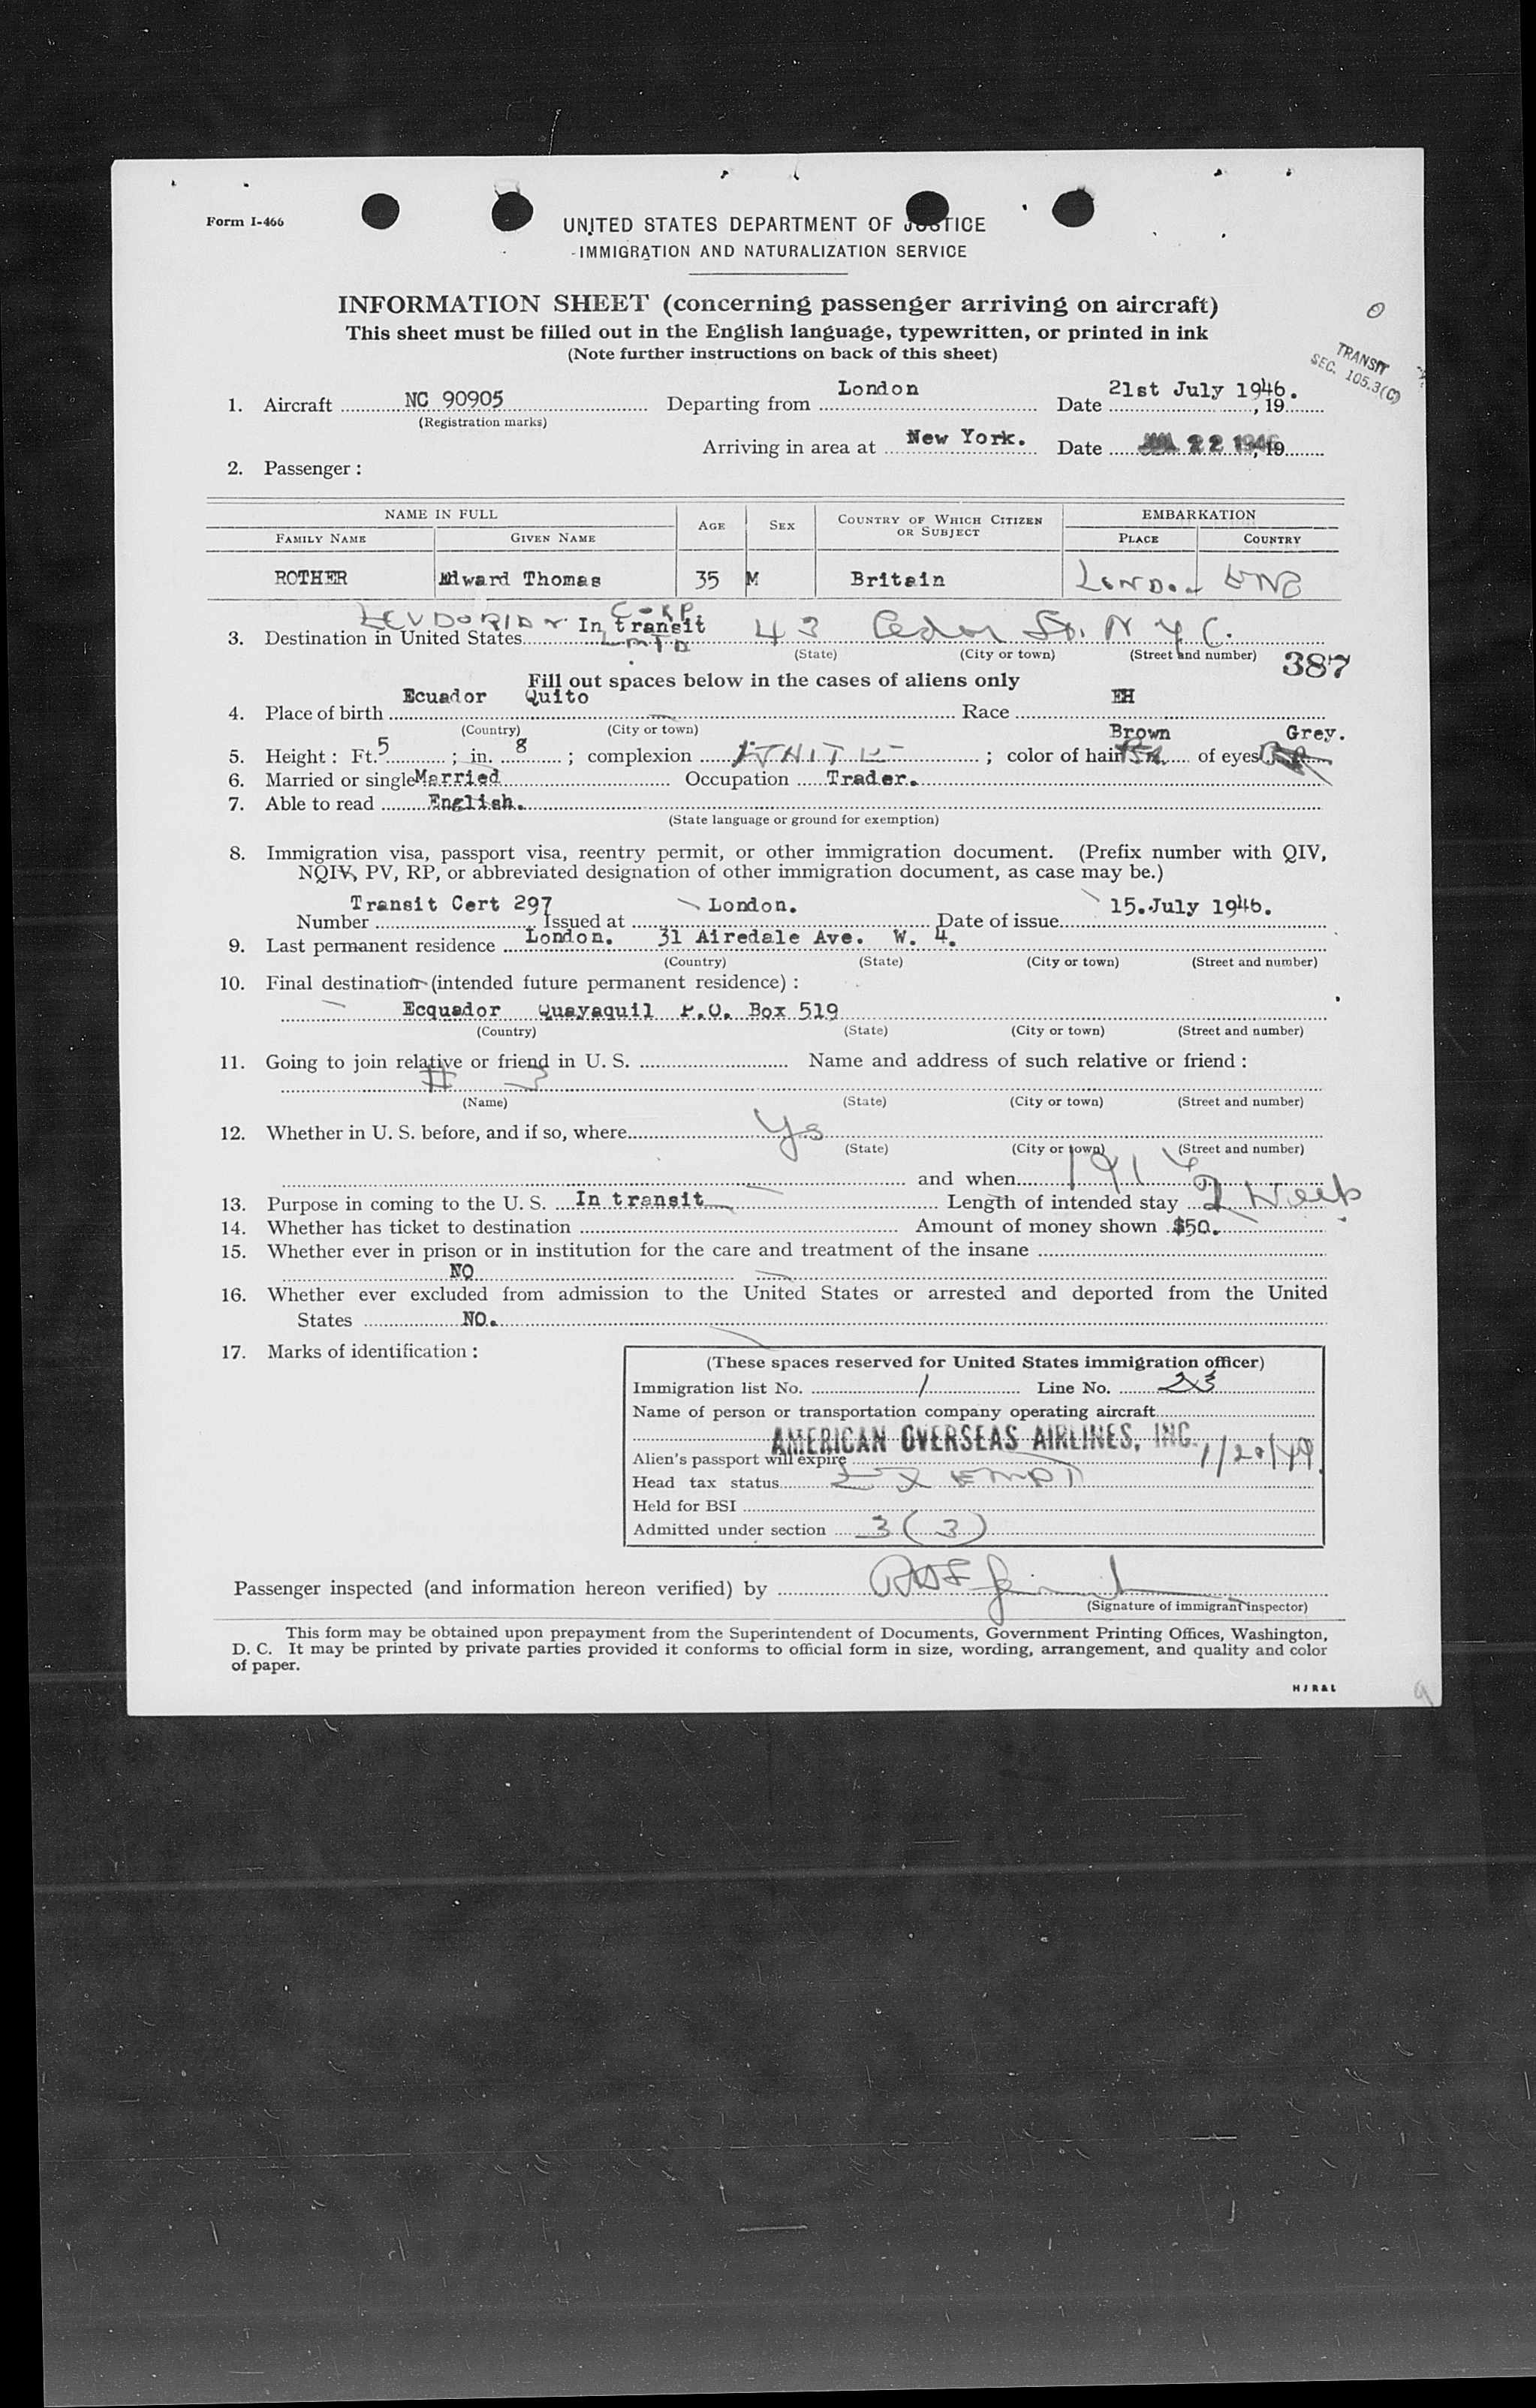 Form I-466
UNITED STATES DEPARTMENT OF JUSTICE
IMMIGRATION AND NATURALIZATION SERVICE
INFORMATION SHEET (concerning passenger arriving on aircraft)
This sheet must be filled out in the English language, typewritten, or printed in ink
(Note further instructions on back of this sheet)
TRANSIT
SEC. 105.3(C)
1. Aircraft NC 90905 Departing from London Date 21st July 1946. , 19
(Registration marks)
Arriving in area at New York. Date JUL 22 1946, 19
2. Passenger:
NAME IN FULL AGE SEX COUNTRY OF WHICH CITIZEN OR SUBJECT EMBARKATION
FAMILY NAME GIVEN NAME PLACE COUNTRY
ROTHER Edward Thomas 35 M Britain LONDON ENG
CORP.
3. Destination in United States In transit 43 Cedar St. N Y C.
LMTD
(State) (City or town) (Street and number)
387
Fill out spaces below in the cases of aliens only
4. Place of birth Ecuador Quito Race EH
(Country) (City or town)
Brown Grey.
5. Height: Ft. 5; in. 8; complexion WHITE; color of hair of eyes
6. Married or single Married Occupation Trader.
7. Able to read English.
(State language or ground for exemption)
8. Immigration visa, passport visa, reentry permit, or other immigration document. (Prefix number with QIV,
NQIV, PV, RP, or abbreviated designation of other immigration document, as case may be.)
Number Transit Cert 297 Issued at London. Date of issue 15.July 1946.
9. Last permanent residence London. 31 Airedale Ave. W. 4.
(Country) (State) (City or town) (Street and number)
10. Final destination (intended future permanent residence):
Ecquador Quayaquil P.O. Box 519
(Country) (State) (City or town) (Street and number)
11. Going to join relative or friend in U. S. Name and address of such relative or friend:
(Name) (State) (City or town) (Street and number)
12. Whether in U. S. before, and if so, where Yes
(State) (City or town) (Street and number)
and when 1916
13. Purpose in coming to the U. S. In transit Length of intended stay 2 Weeks
14. Whether has ticket to destination Amount of money shown $50.
15. Whether ever in prison or in institution for the care and treatment of the insane
NO
16. Whether ever excluded from admission to the United States or arrested and deported from the United
States NO.
17. Marks of identification:
(These spaces reserved for United States immigration officer)
Immigration list No. 1 Line No. 23
Name of person or transportation company operating aircraft
AMERICAN OVERSEAS AIRLINES, INC.
Alien's passport will expire 1/20/49
Head tax status EXEMPT
Held for BSI
Admitted under section 3(3)
Passenger inspected (and information hereon verified) by
(Signature of immigrant inspector)
This form may be obtained upon prepayment from the Superintendent of Documents, Government Printing Offices, Washington,
D. C. It may be printed by private parties provided it conforms to official form in size, wording, arrangement, and quality and color
of paper.
HJR&L